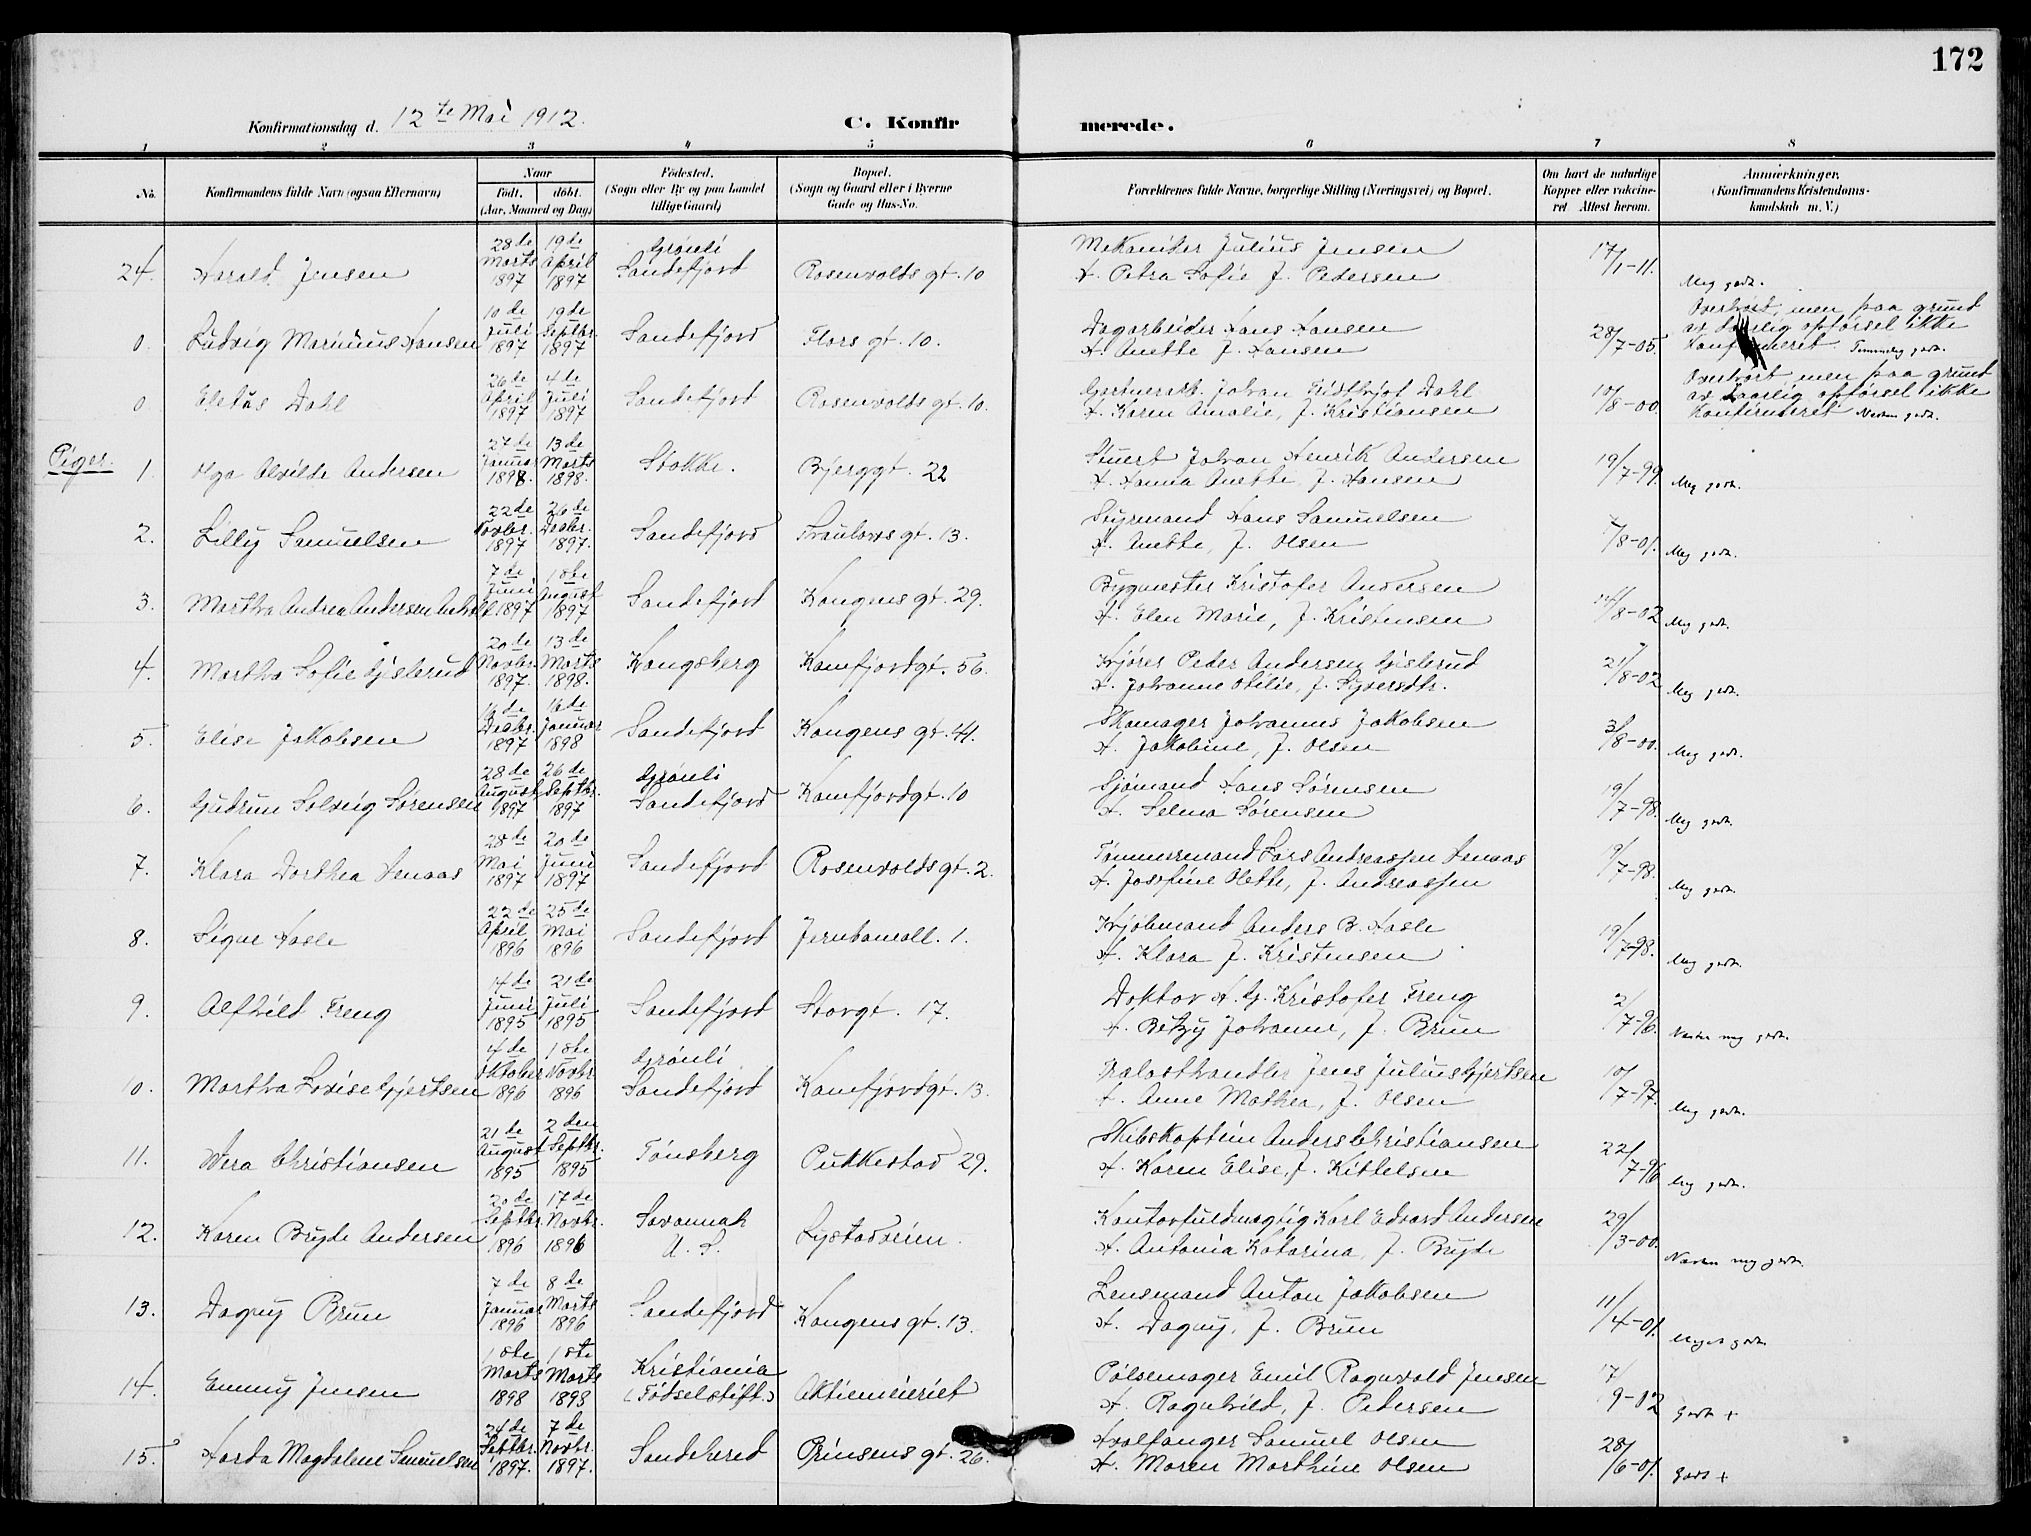 172
Konfirmationsdag d. 12te Mai 1912.
C. Konfirmerede.
1 2 3 4 5 6 7 8
No. Konfirmandens fulde Navn (ogsaa Efternavn) Naar födt. döbt. (Aar, Maaned og Dag) Födested. (Sogn eller By og paa Landet tillige Gaard) Bopæl. (Sogn og Gaard eller i Byerne Gade og Hus-No. Forældrenes fulde Navne, borgerlige Stilling (Næringsvei) og Bopæl. Om havt de naturlige Kopper eller vaccineret Attest herom. Anmærkninger. (Konfirmandens Kristendomskundskab m. V.)
24. Harald Jensen 28de Marts 1897 19de April 1897 Grönli Sandefjord Rosenvolds gt. 10 Mekaniker Julius Jensen H. Petra Sofie f. Pedersen 17/1-11. Meg godt.
0. Ludvig Marinius Hansen 10de Juli 1897 19de Septbr. 1897 Sandefjord Flors gt. 10. Dagarbeider Hans Hansen H. Anette f. Hansen 28/7-05. Overhört, men paa grund av daarlig opförsel ikke Konfirmeret. Temmelig godt.
0 Eletus Dahl 26de April 1897 4de Juli 1897 Sandefjord Rosenvolds gt. 10. Gartnerarb. Johan Fridthjof Dahl H. Karen Amalie, f. Kristiansen 10/8-00. Overhört men paa grund av daarlig opförsel ikke Konfirmeret Næsten godt.
Piger.
1. Olga Alvilde Andersen 27de Januar 1898. 13de Marts 1898. Stokke. Bjerggt. 22 Stuert Johan Henrik Andersen H. Hanna Anette, f. Hansen 19/7-99. Meg godt.
2. Lilly Samuelsen 22de Novbr. 1897 26de Decbr. 1897. Sandefjord Thaulows gt. 13. Styrmand Hans Samuelsen H. Anette, f. Olsen 7/8-01. Meg godt.
3. Martha Andrea Andersen 7de Juni 1897 1ste August 1897 Sandefjord Kongens gt. 29. Bygmester Kristofer Andersen H. Elen Marie, f. Kristensen 14/8-02 Meg godt.
4. Martha Sofie Gislerud 20de Novbr. 1897. 13de Marts 1898. Kongsberg Kamfjordgt. 56. Kjörer Peder Andersen Gislerud H. Johanne Otilie, f. Syversdtr. 21/8-02 Meg godt.
5. Elise Jakobsen 16de Decbr. 1897 16de Januar 1898 Sandefjord Kongens gt. 44. Skomager Johannes Jakobsen H. Jakobine, f. Olsen 3/8-00. Meg godt.
6. Gudrun Solveig Sörensen 28de August 1897 26de Septbr. 1897 Grönli Sandefjord Kamfjordgt. 10 Sjömand Hans Sörensen H. Selma Sörensen 19/7-98. Meg godt.
7. Klara Dorthea Venaas 28de Mai 1897 20de Juni 1897 Sandefjord Rosenvolds gt. 2. Tömmermand Lars Andreassen Venaas H. Josefine Olette, f. Andreassen 19/7-98. Meg godt.
8. Signe Hasle 22de April 1896 25de Mai 1896 Sandefjord Jernbaneall. 1. Kjöbmand Anders B. Hasle H. Klara f. Kristensen 19/7-98. Meg godt.
9. Alfhild Freng 14de Juni 1895 21de Juli 1895 Sandefjord Storgt. 17. Doktor H. G. Kristofer Freng H. Betzy Johanne, f. Bruun 2/7-96. Næsten meg godt.
10. Martha Lovise Gjertsen 4de Oktober 1896 1ste Novbr. 1896 Grönli Sandefjord Kamfjordgt. 13. Trælasthandler Jens Julius Gjertsen H. Anne Mathea, f. Olsen 10/7-97. Meg godt.
11. Wera Christiansen 21de August 1895 2den Septbr. 1895 Tönsberg Pukkestad 29. Skibskaptein Anders Christiansen H. Karen Elise, f. Kittelsen 22/7-96 Meg godt.
12. Karen Bryde Andersen 20de Septbr. 1896 17de Novbr. 1896 Savannah U. S. Lystadveien. Kontorfuldmægtig Karl Edvard Andersen H. Antonia Katarina, f. Bryde 29/3-00. Næsten meg godt.
13. Dagny Bruun 7de Januar 1896 8de Marts 1896 Sandefjord Kongens gt. 13. Lensmand Anton Jakobsen H. Dagny, f. Bruun 11/4-01. Meget godt.
14. Emmy Jensen 1ste Marts 1898 1ste Marts 1898 Kristiania (Födselstift.) Aktiemeieriet Pölsemager Emil Ragnvald Jensen H. Ragnhild, f. Pedersen 17/9-02 Godt +
15. Harda Magdalene Samuelsen 24de Septbr. 1897. 7de Novbr. 1897. Sandeherred Prinsens gt. 26. Hvalfanger Samuel Olsen H. Maren Marthine Olsen 28/6-01. Godt +